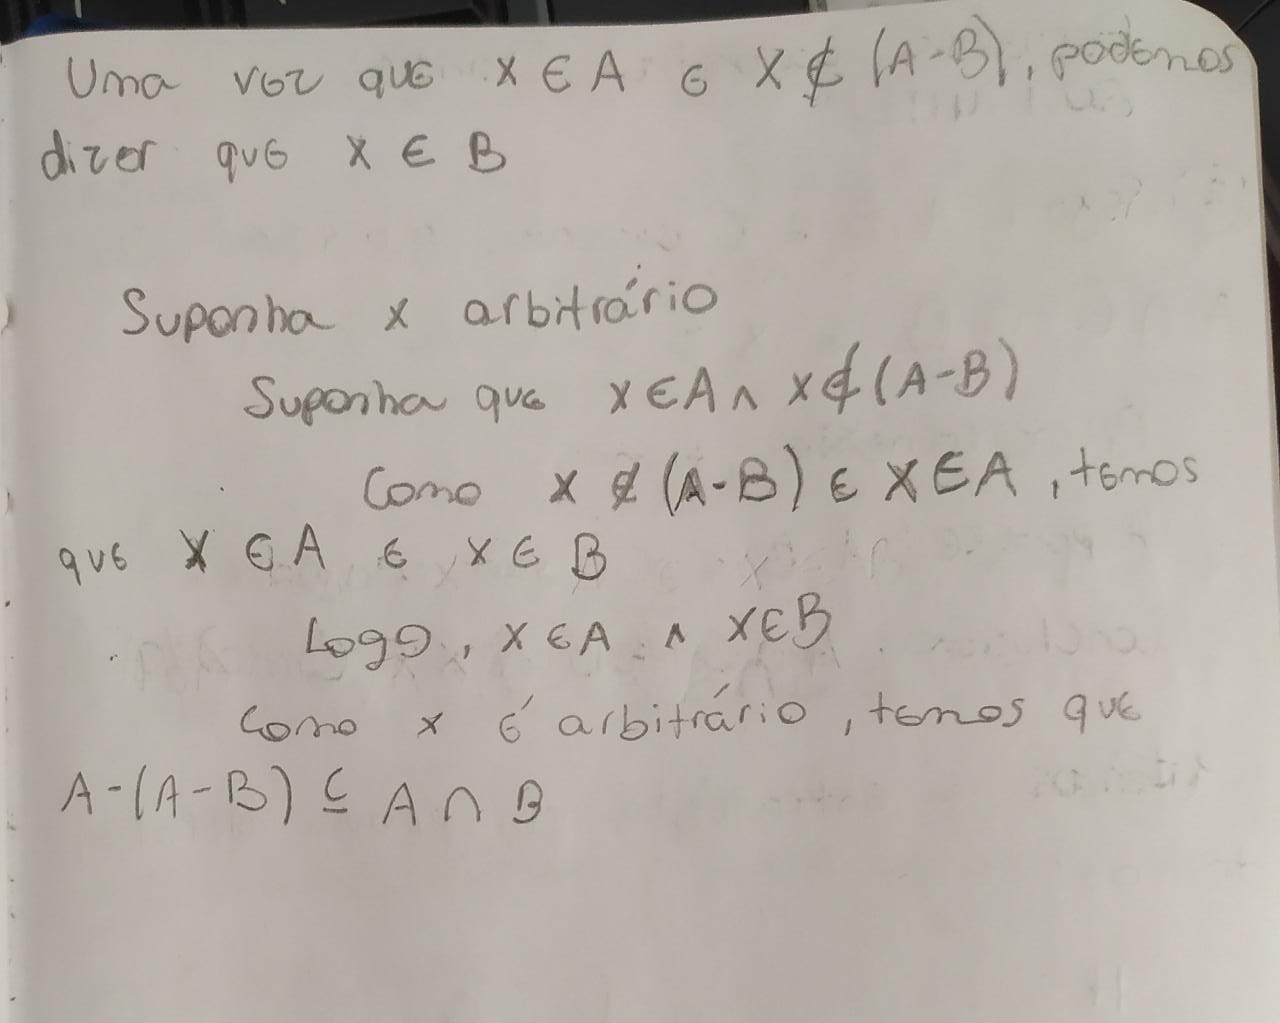 Uma vez que x ∈ A e x ∉ (A-B), podemos
dizer que x ∈ B
Suponha x arbitrário
Suponha que x ∈ A ∧ x ∉ (A-B)
Como x ∉ (A-B) e x ∈ A, temos
que x ∈ A e x ∈ B
Logo, x ∈ A ∧ x ∈ B
Como x é arbitrário, temos que
A-(A-B) ⊆ A ∩ B